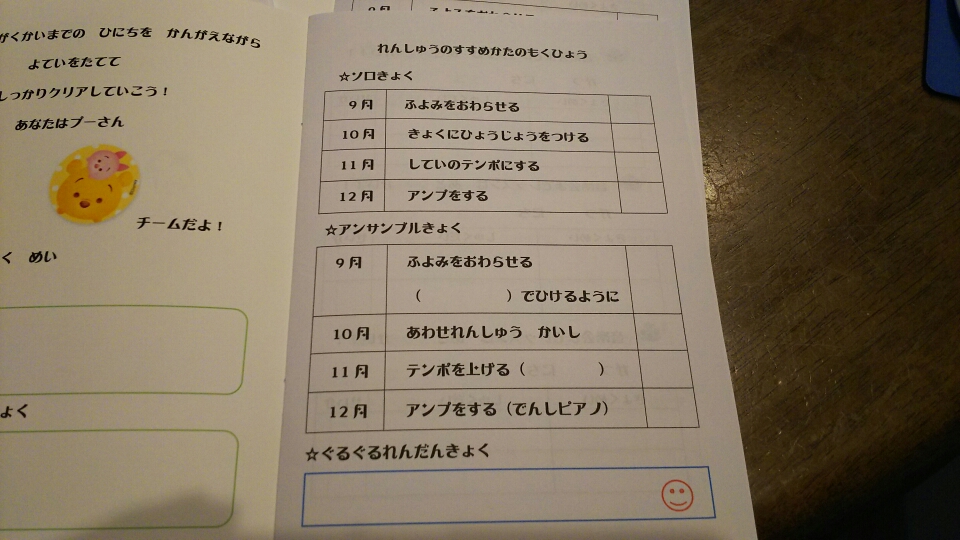 がくかいまでの ひにちを かんがえながら
よていをたてて
しっかりクリアしていこう！
あなたはプーさん
チームだよ！
く めい
よく
れんしゅうのすすめかたのもくひょう
☆ソロきょく
9月 ふよみをおわらせる
10月 きょくにひょうじょうをつける
11月 していのテンポにする
12月 アンプをする
☆アンサンブルきょく
9月 ふよみをおわらせる
（ ）でひけるように
10月 あわせれんしゅう かいし
11月 テンポを上げる（ ）
12月 アンプをする（でんしピアノ）
☆ぐるぐるれんだんきょく